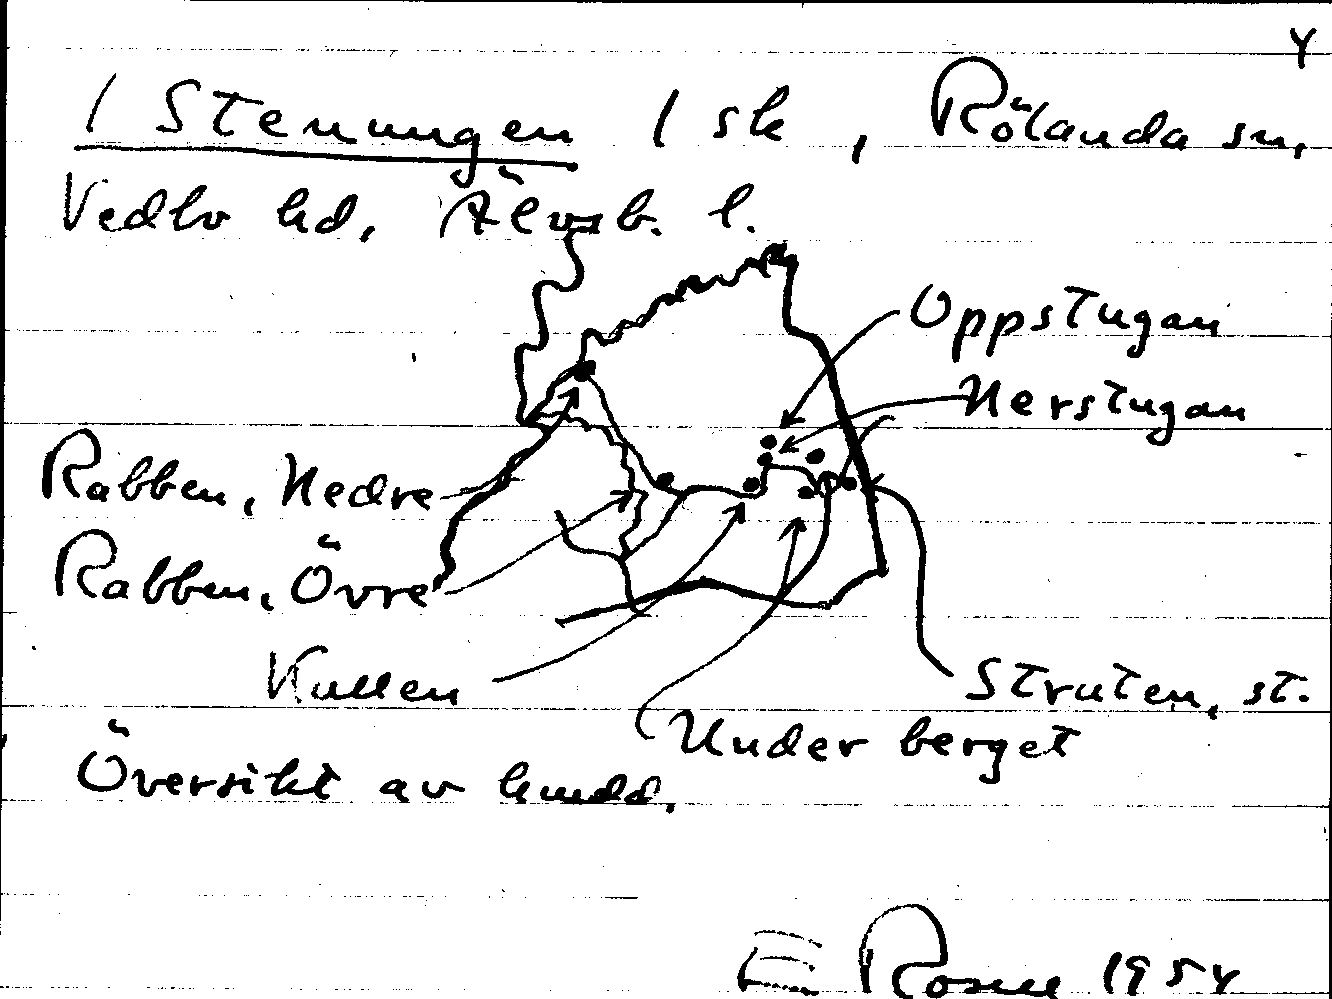 4
1 Stenungen 1 sk, Rölanda sn,
Vedbo hd, Älvsb. l.
Oppstugan
Nerstugan
Rabben, Nedre
Rabben, Övre
Kullen
Struten, st.
Under berget
Översikt av
E Rosell 1954